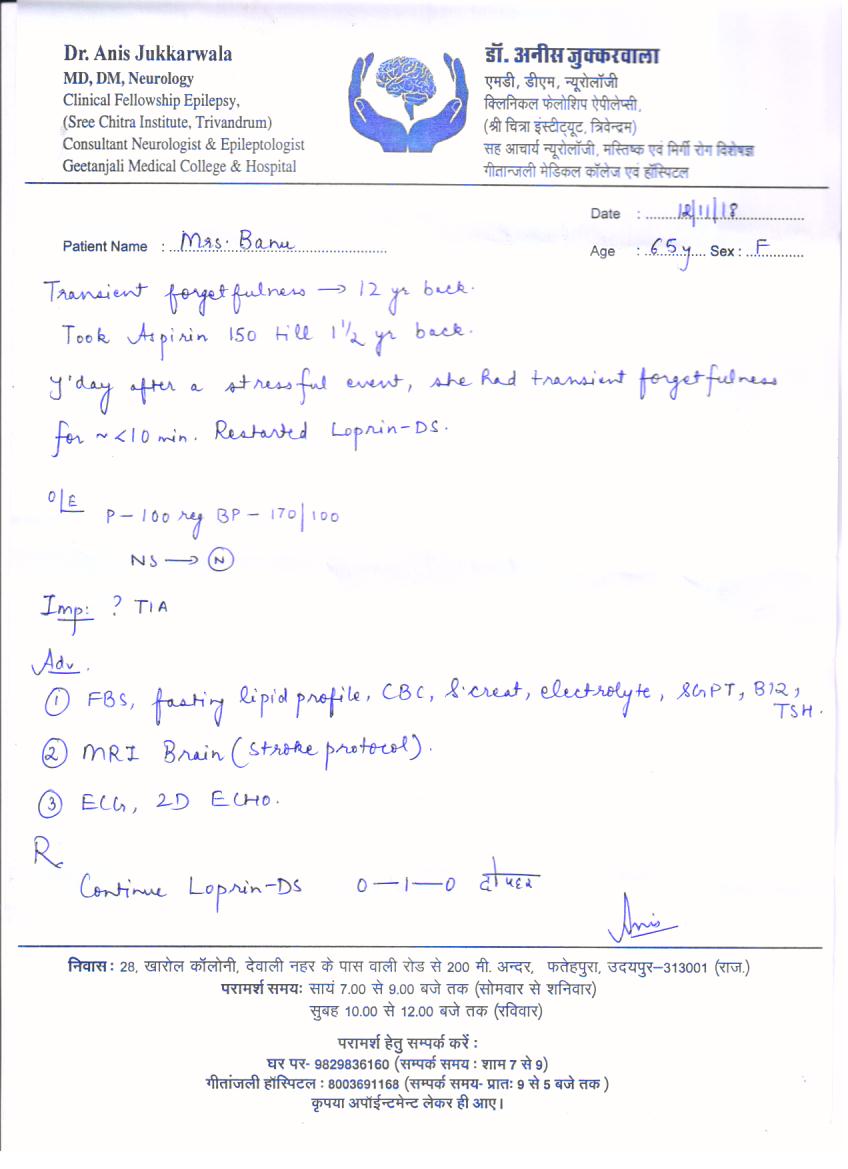 Dr. Anis Jukkarwala
MD, DM, Neurology
Clinical Fellowship Epilepsy,
(Sree Chitra Institute, Trivandrum)
Consultant Neurologist & Epileptologist
Geetanjali Medical College & Hospital
डॉ. अनीस जुक्करवाला
एमडी, डीएम, न्यूरोलॉजी
क्लिनिकल फेलोशिप ऐपीलेप्सी,
(श्री चित्रा इंस्टीट्यूट, त्रिवेन्द्रम)
सह आचार्य न्यूरोलॉजी, मस्तिष्क एवं मिर्गी रोग विशेषज्ञ
गीतान्जली मेडिकल कॉलेज एवं हॉस्पिटल
Date : 12/11/18
Patient Name : Mrs. Banu
Age : 65y Sex : F
Transient forgetfulness → 12 yr back.
Took Aspirin 150 till 1 1/2 yr back.
Y'day after a stressful event, she had transient forgetfulness
for ~ <10 min. Restarted Loprin-DS.
O/E
P - 100 reg BP - 170/100
NS → N
Imp: ? TIA
Adv.
1 FBS, fasting lipid profile, CBC, S.creat, electrolyte, SGPT, B12,
TSH.
2 MRI Brain (stroke protocol).
3 ECG, 2D ECHO.
Rx
Continue Loprin-DS 0—1—0 दोपहर
Anis
निवास : 28, खारोल कॉलोनी, देवाली नहर के पास वाली रोड से 200 मी. अन्दर, फतेहपुरा, उदयपुर-313001 (राज.)
परामर्श समय: सायं 7.00 से 9.00 बजे तक (सोमवार से शनिवार)
सुबह 10.00 से 12.00 बजे तक (रविवार)
परामर्श हेतु सम्पर्क करें :
घर पर- 9829836160 (सम्पर्क समय : शाम 7 से 9)
गीतांजली हॉस्पिटल : 8003691168 (सम्पर्क समय- प्रातः 9 से 5 बजे तक )
कृपया अपॉईन्टमेन्ट लेकर ही आए।